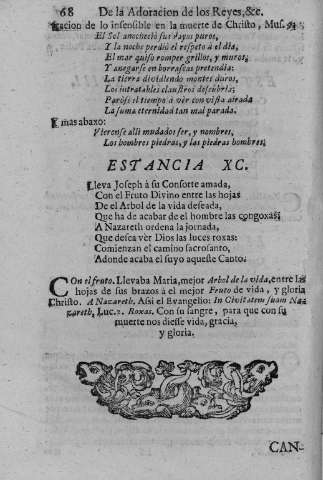 68 De la Adoracion de los Reyes, &c.
tacion de lo insensible en la muerte de Christo, Mus. 4:
El Sol anocheciò sus rayos puros,
Y la noche perdiò el respeto à el dia,
El mar quiso romper grillos, y muros,
Y anegarse en borrascas pretendia:
La tierra dividiendo montes duros,
Los intratables claustros descubria;
Pareciò el tiempo à vèr con vista airada
La suma eternidad tan mal parada.
Y mas abaxo:
Vieronse alli mudados ser, y nombres,
Los hombres piedras, y las piedras hombres;
ESTANCIA XC.
Lleva Joseph à su Consorte amada,
Con el Fruto Divino entre las hojas
De el Arbol de la vida deseada,
Que ha de acabar de el hombre las congoxas;
A Nazareth ordena la jornada,
Que desea vèr Dios las luces roxas:
Comienzan el camino sacrosanto,
Adonde acaba el suyo aqueste Canto.
Con el fruto. Llevaba Maria, mejor Arbol de la vida, entre las
hojas de sus brazos à el mejor Fruto de vida, y gloria
Christo. A Nazareth. Assi el Evangelio: In Civitatem suam Na-
zareth, Luc. 2. Roxas. Con su sangre, para que con su
muerte nos diesse vida, gracia,
y gloria.
CAN-